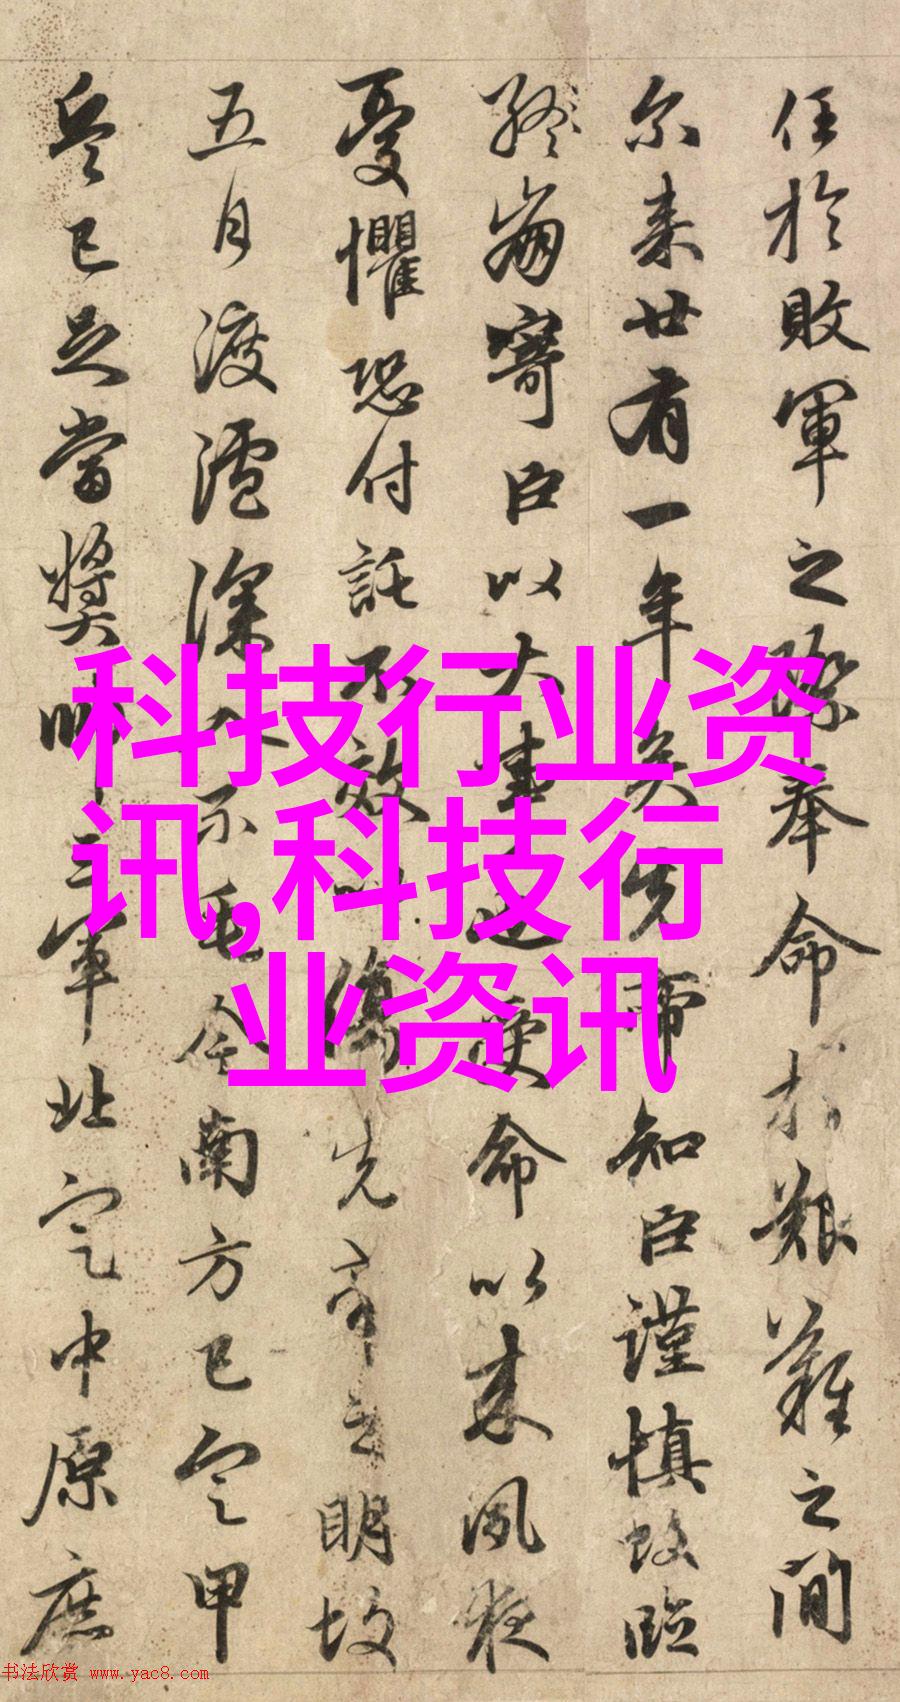 任於敗軍之際奉命於艱難之間
尔来廿有一年矣先帝知臣謹慎故臨
終崩寄臣以大事也受命以来夙夜
憂懼恐付託不效以傷先帝之明故
五月渡瀘深入不毛今南方已定甲
兵已足當獎帥三軍北定中原庶
科技行业资
讯,科技行
业资讯
书法欣赏 www.yac8.com